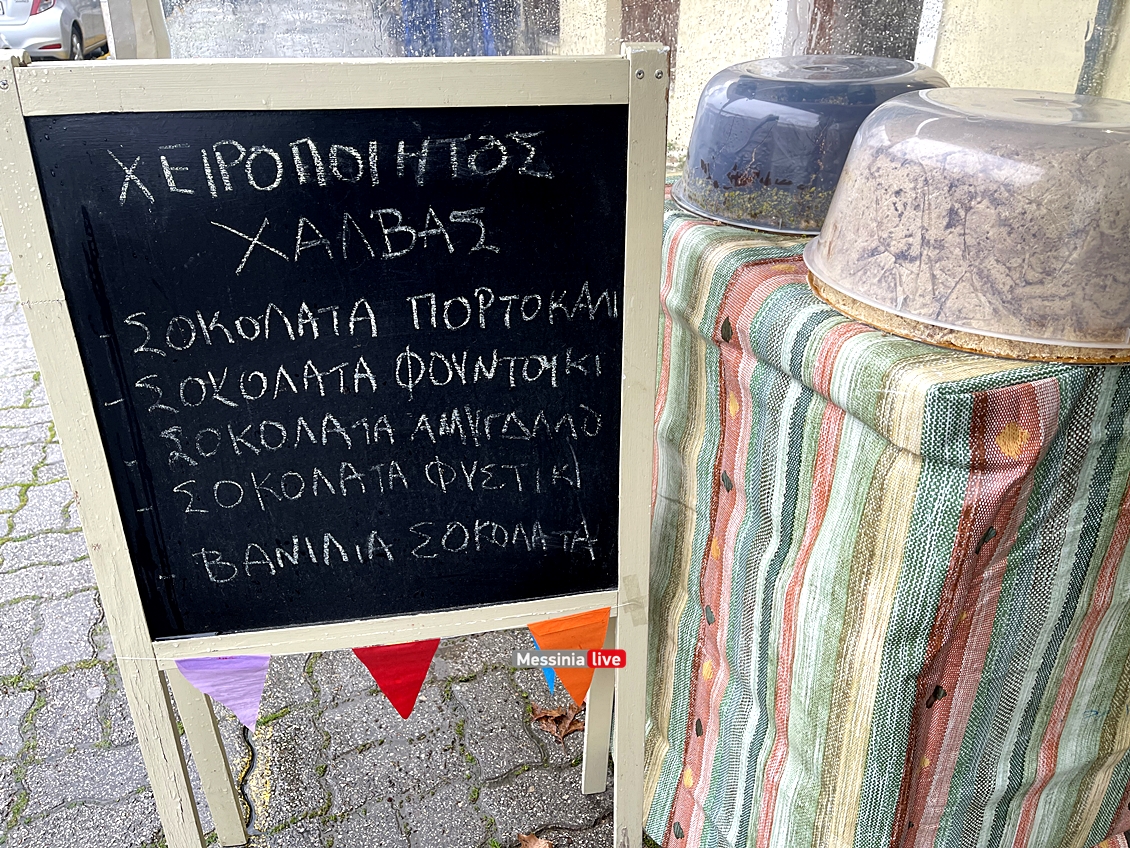 ΧΕΙΡΟΠΟΙΗΤΟΣ
ΧΑΛΒΑΣ
- ΣΟΚΟΛΑΤΑ ΠΟΡΤΟΚΑΛΙ
- ΣΟΚΟΛΑΤΑ ΦΟΥΝΤΟΥΚΙ
- ΣΟΚΟΛΑΤΑ ΑΜΥΓΔΑΛΟ
- ΣΟΚΟΛΑΤΑ ΦΥΣΤΙΚΙ
- ΒΑΝΙΛΙΑ ΣΟΚΟΛΑΤΑ
Messinia live